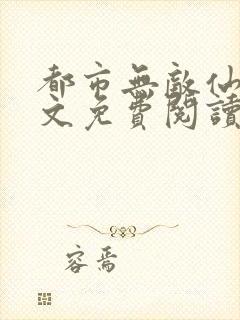 都市無敵仙
文免費閱讀
容焉